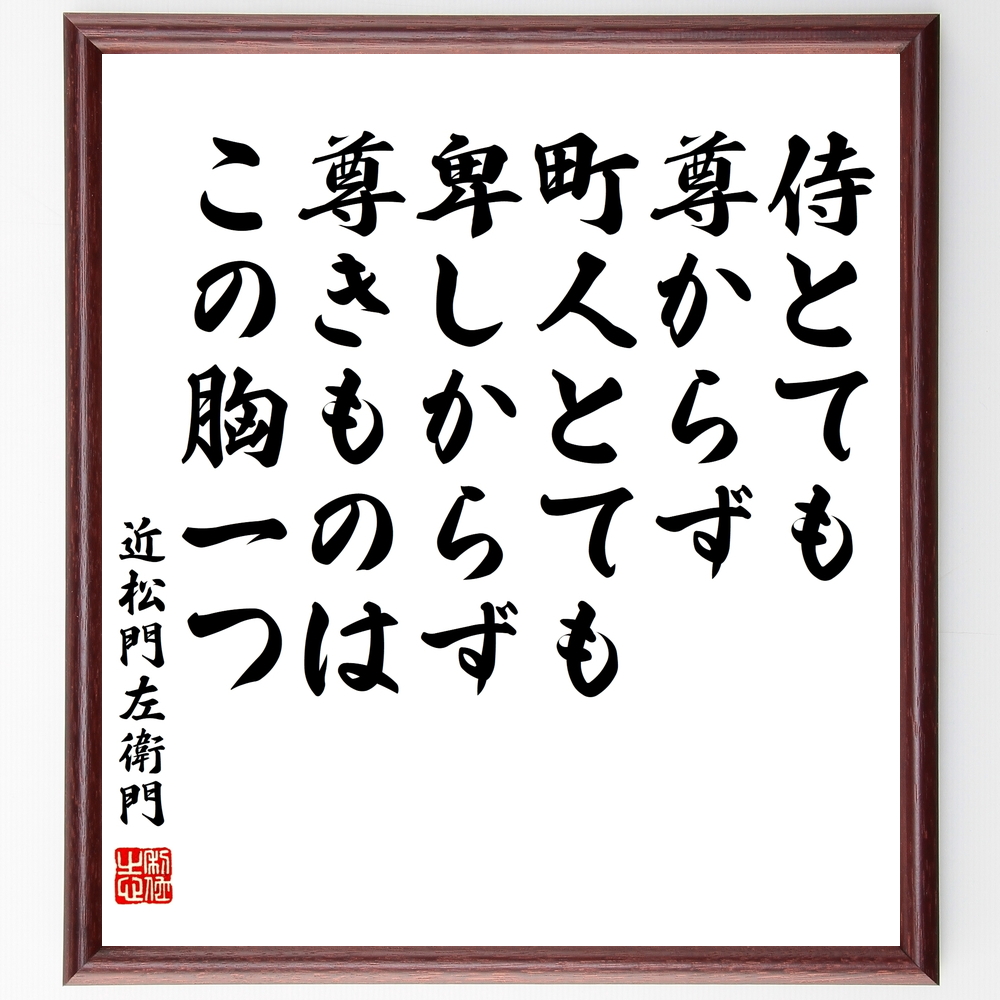 侍とても
尊からず
町人とても
卑しからず
尊きものは
この胸一つ
近松門左衛門